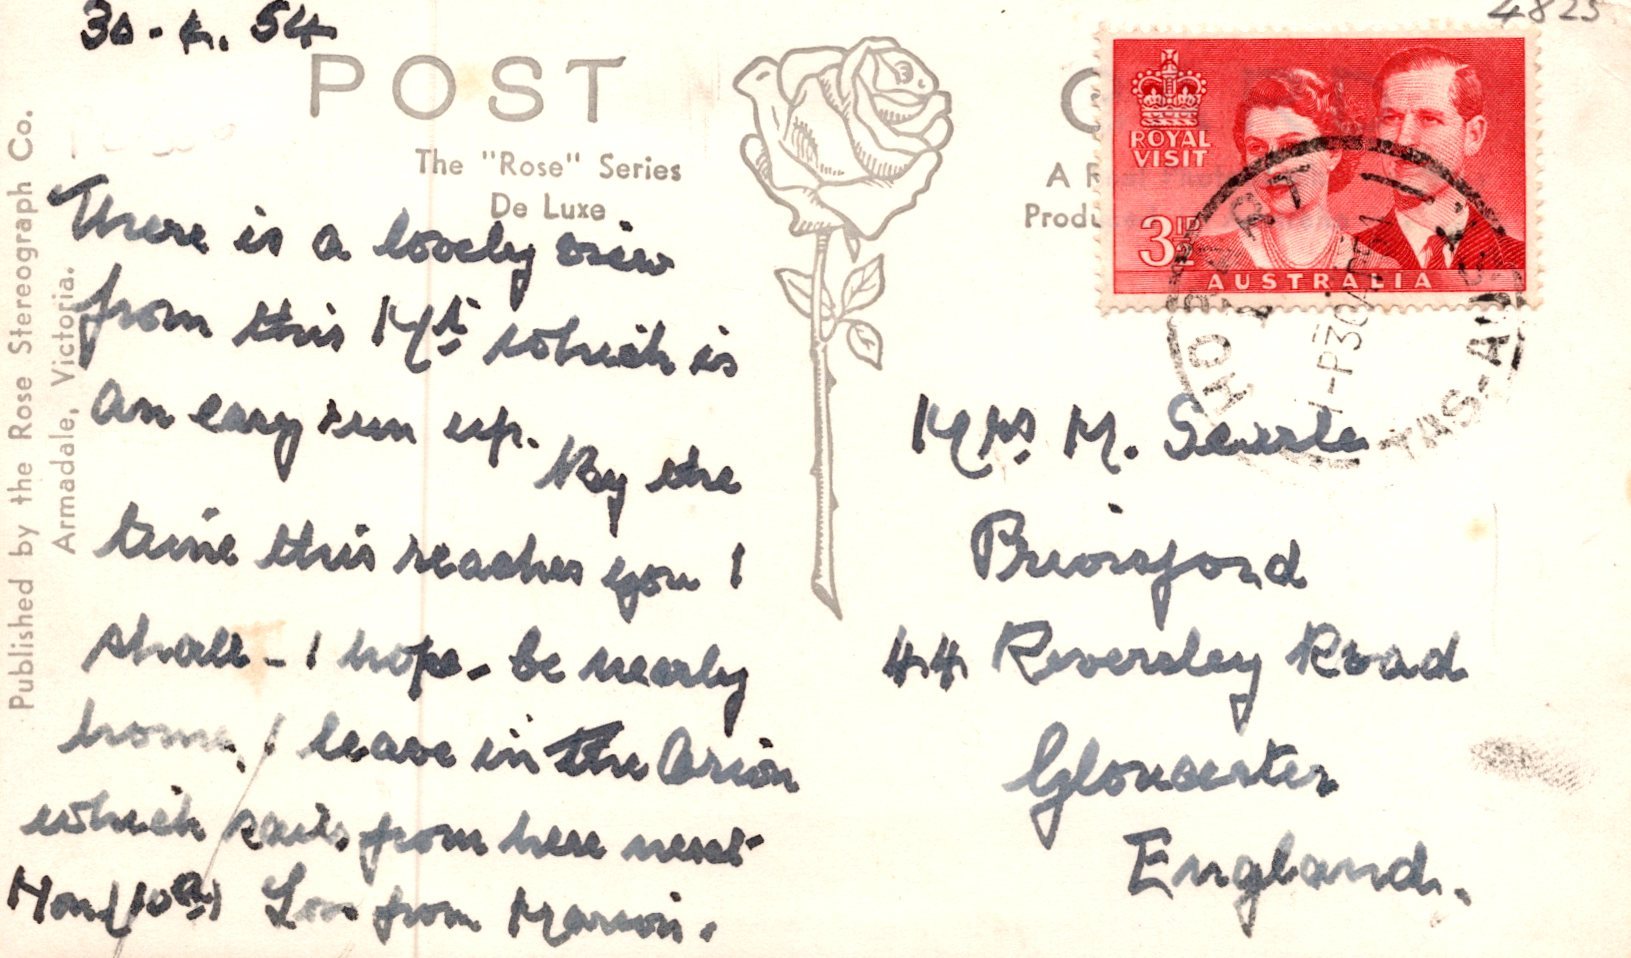 30-4.54
4825
POST
The "Rose" Series
De Luxe
Published by the Rose Stereograph Co.
Armadale, Victoria.
C
A R
Produ
ROYAL
VISIT
3½D
AUSTRALIA
HOBART
1-P30
TAS-AUST
There is a lovely view
from this Mt which is
an easy run up. By the
time this reaches you I
shall - I hope - be nearly
home, I leave in the Orion
which sails from here next
Mon (10th) Love from Marion.
Mrs M. Searle
44 Reversley Road
Gloucester
England.